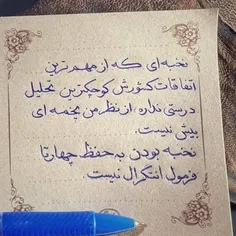 نخبه‌ای که از مهم ترین
اتفاقات کشورش کوچکترین تحلیل
درستی نداره، از نظر من پخمه ای
بیش نیست.
نخبه بودن به حفظ چهارتا
فرمول انتگرال نیست